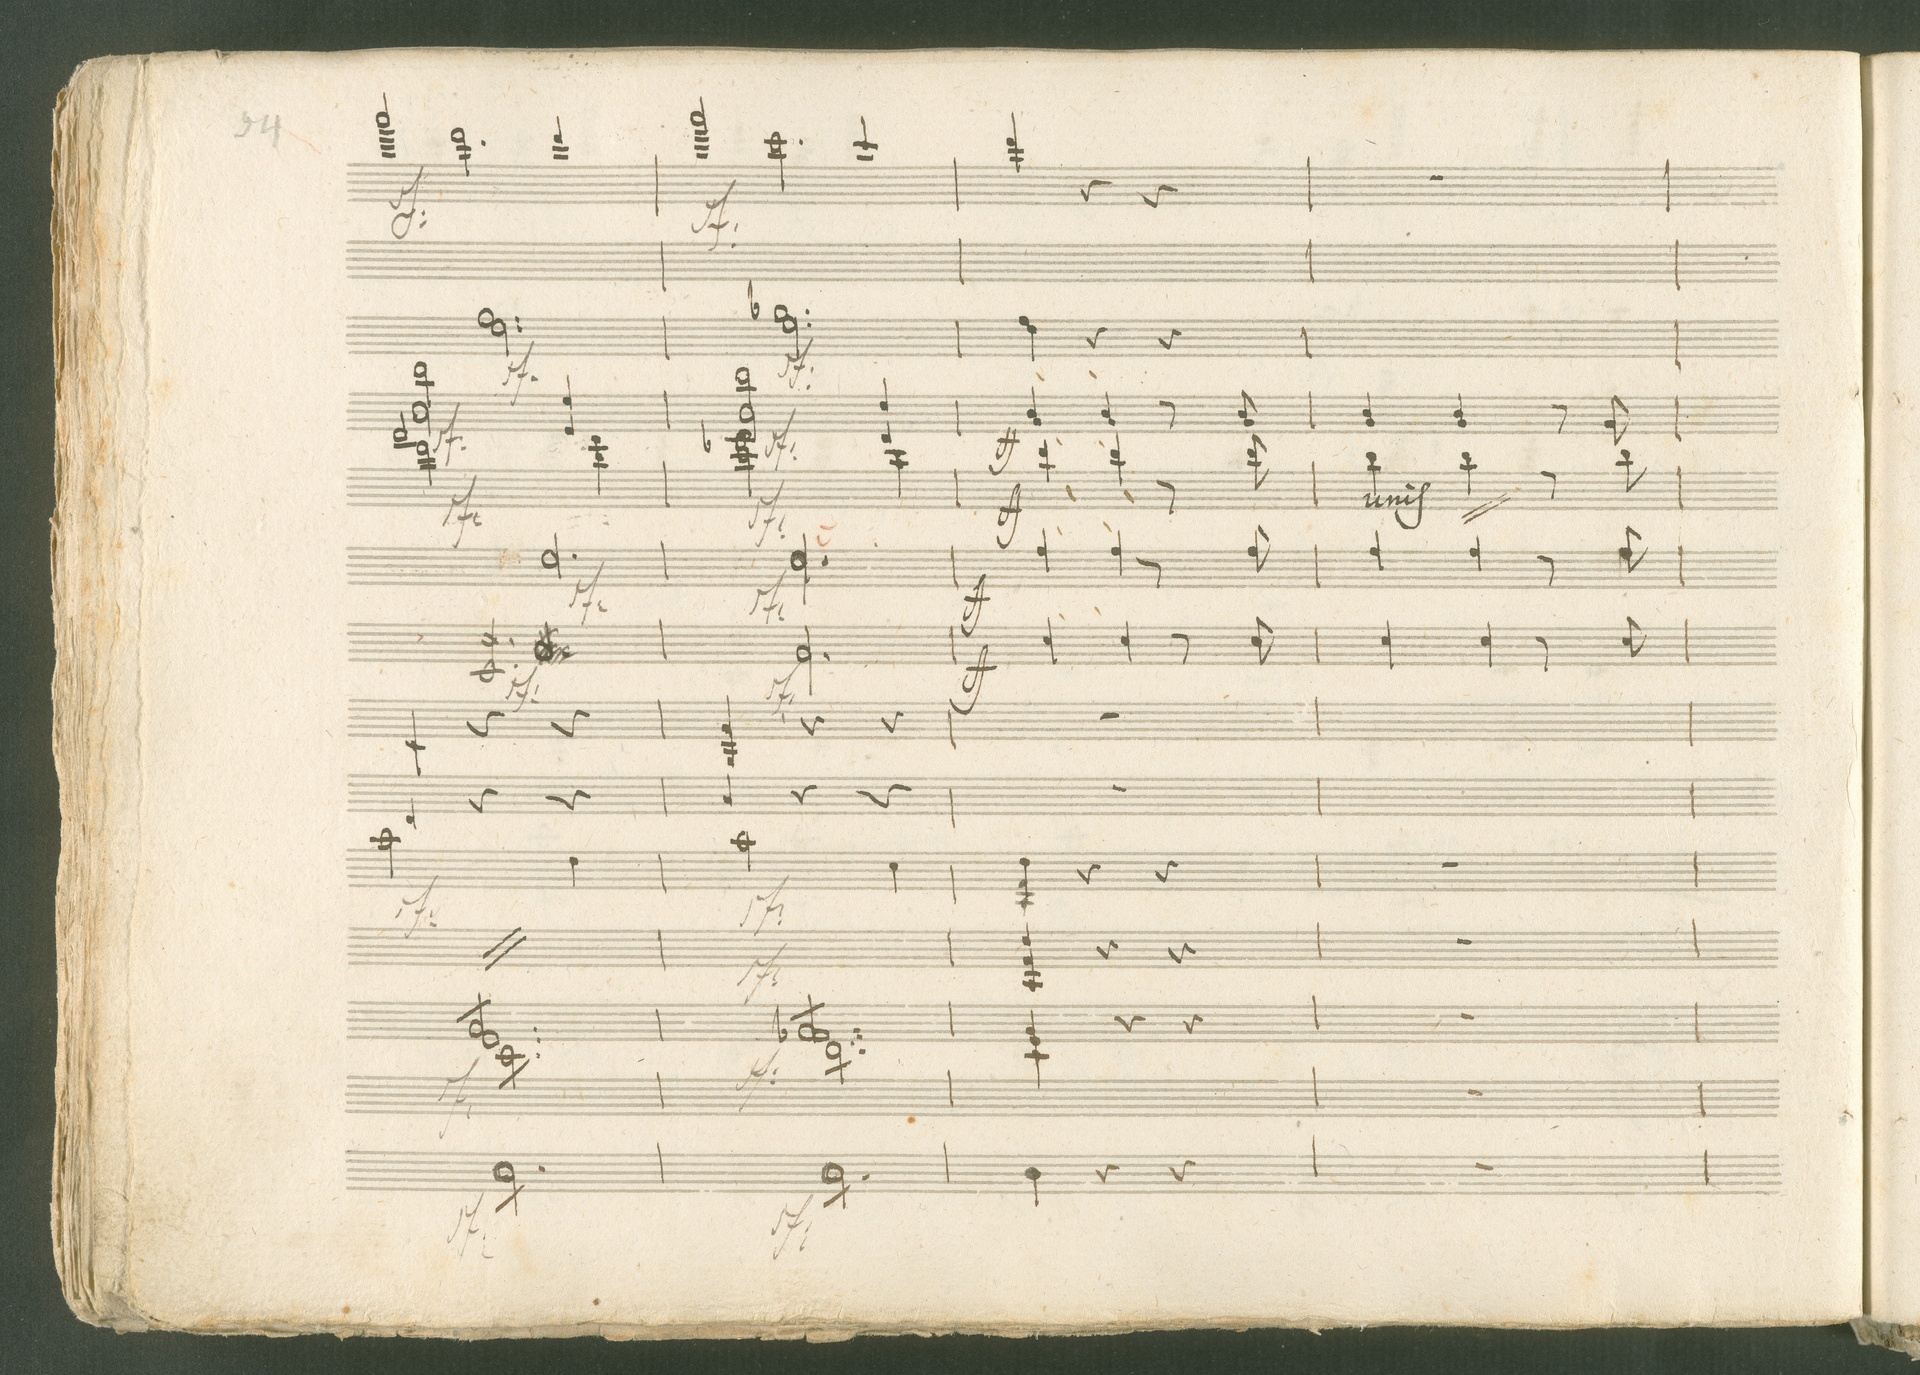 94
sf: sf:
sf: sf:
sf: sf: ff
sf: sf: ff unis
sf: sf: ff
sf: sf: ff
sf: sf:
sf:
sf: sf:
sf: sf: